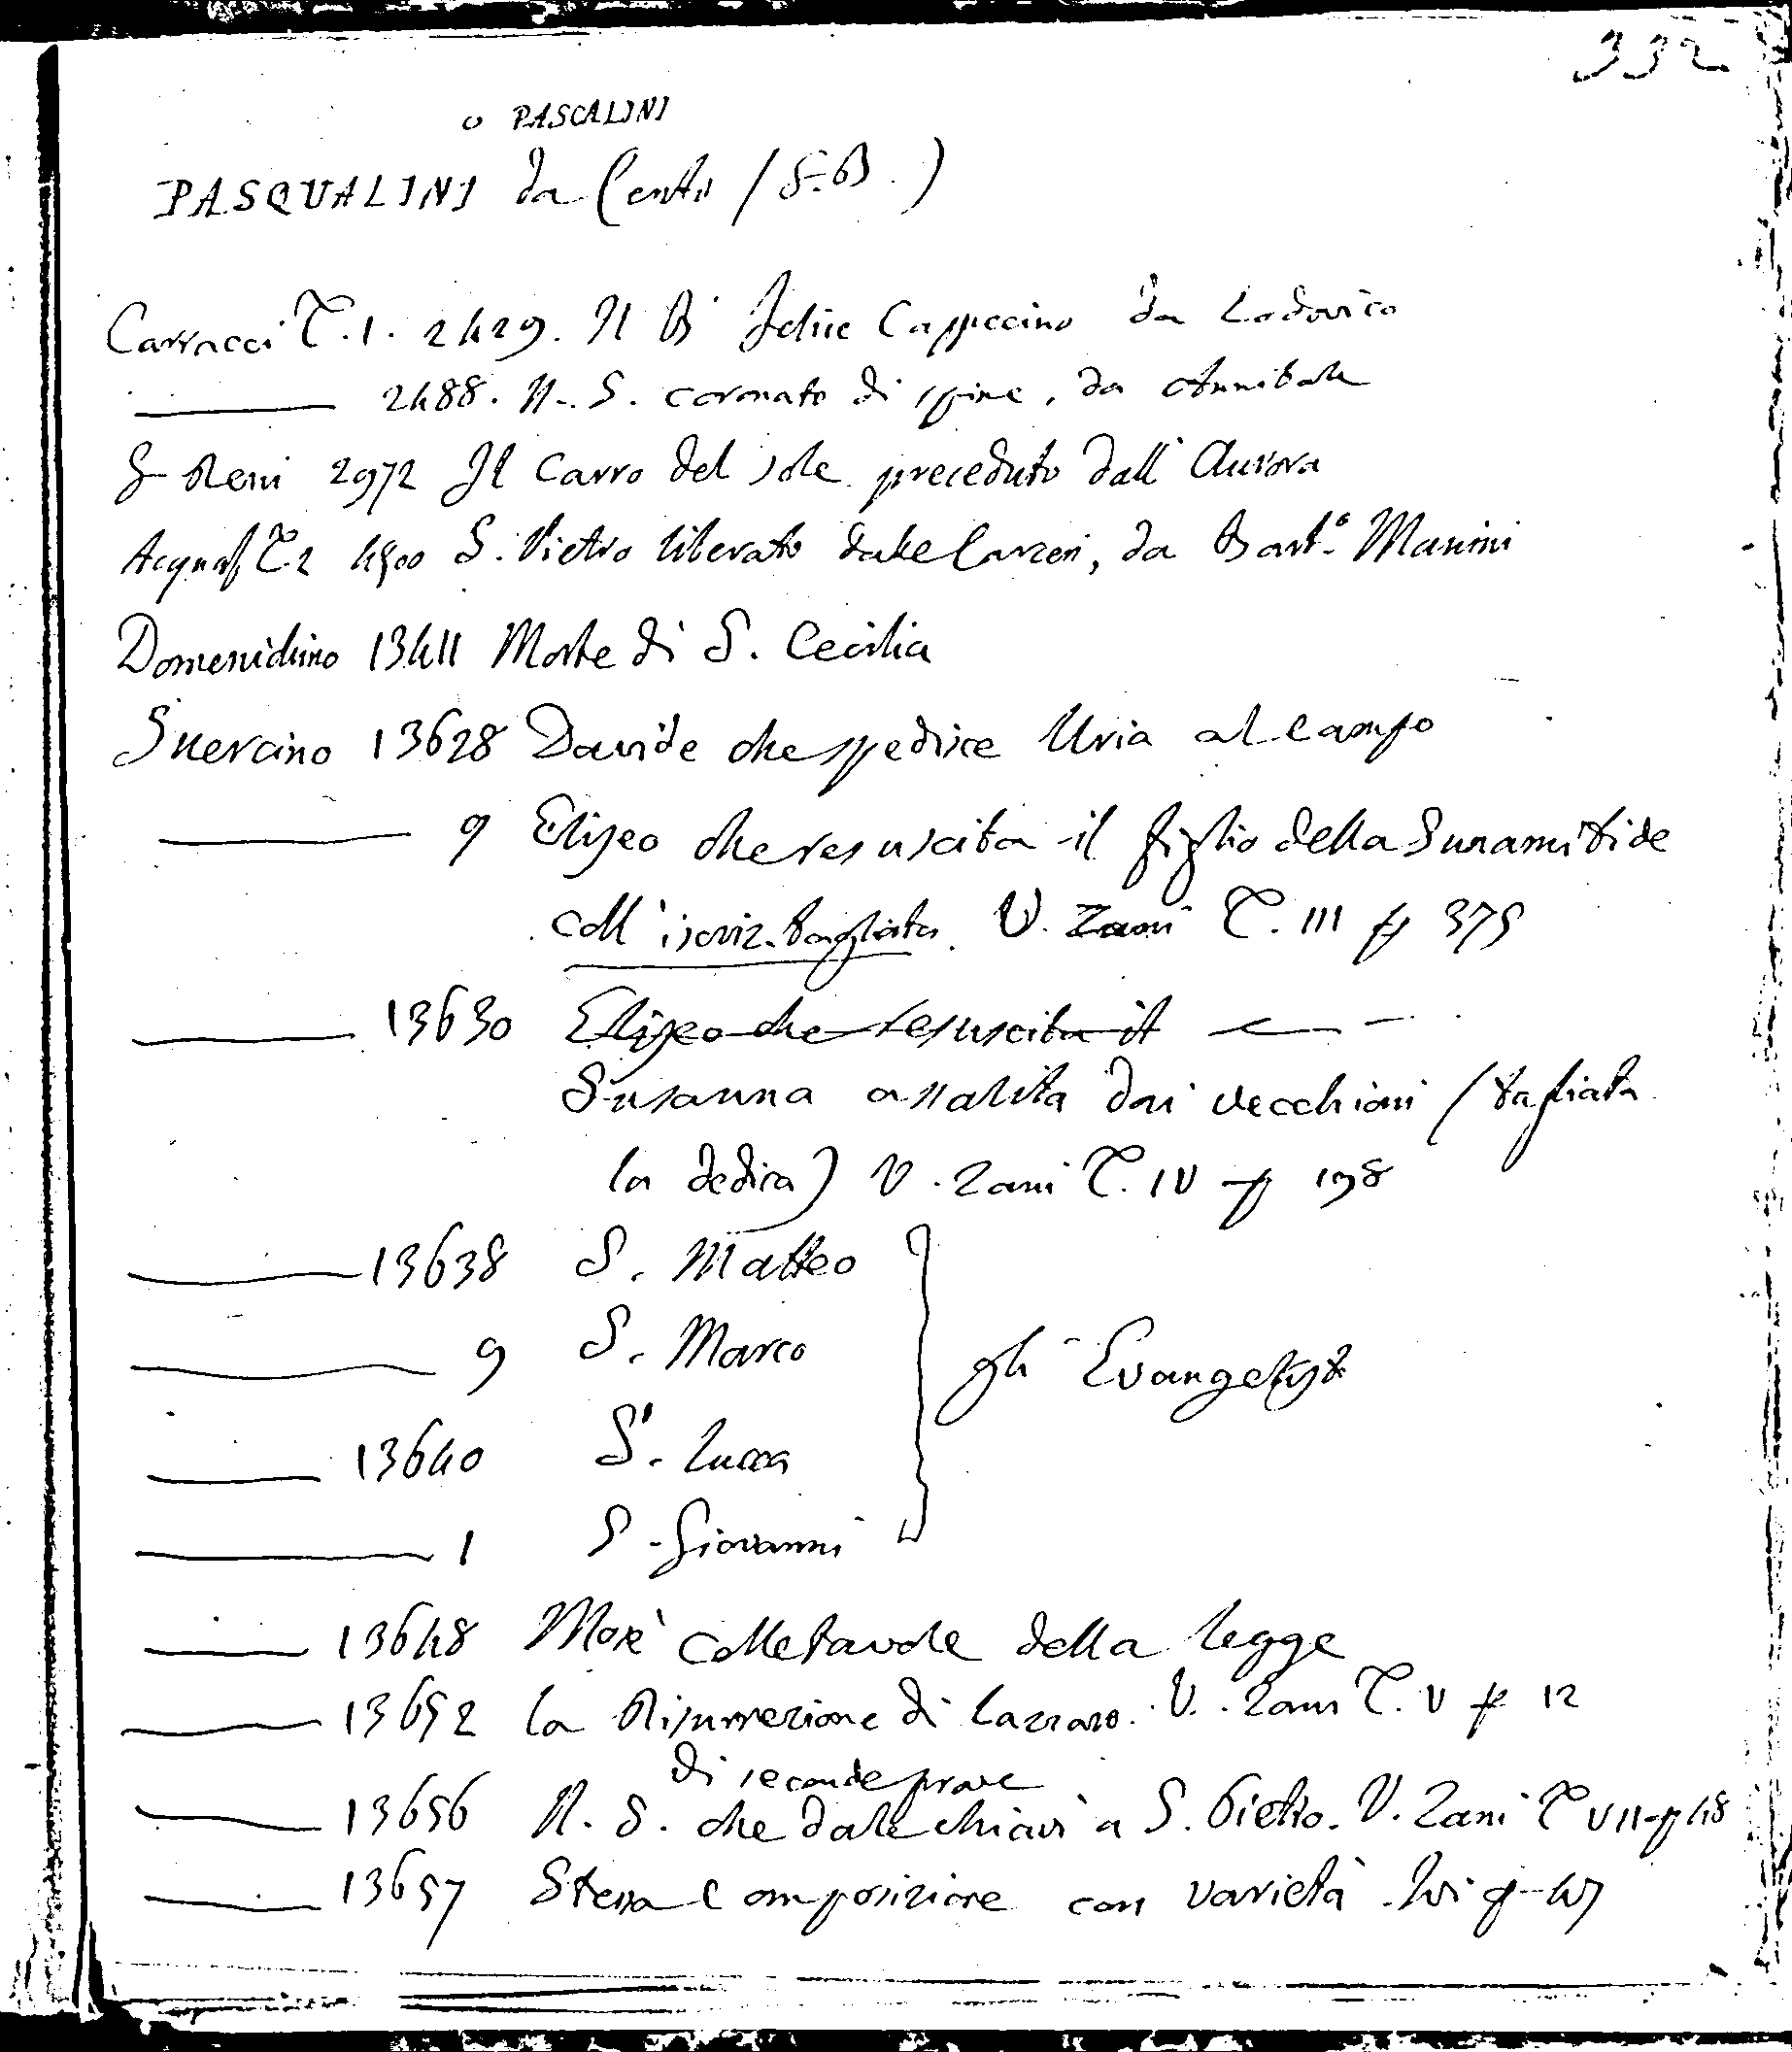 332
o PASCALINI
PASQUALINI da Cento (G. B.)
Carracci T. 1. 2429. Il B Felice Cappuccino da Lodovico
2488. N. S. coronato di spine, da Annibale
G Reni 2972 Il Carro del sole preceduto dall' Aurora
Acquaf. T. 2 4500 S. Pietro liberato dalle Carceri, da Bart.o
Domenichino 13411 Morte di S. Cecilia
Guercino 13628 Davide che spedisce Uria al campo
9 Eliseo che resuscita il figlio della Sunamitide
coll' iscriz. tagliata. V. Zani T. III p 375
13630 Eliseo che resuscita il
Susanna assalita dai vecchioni (tagliata
la dedica) V. Zani T. IV p 198
13638 S. Matteo
9 S. Marco
gli Evangelisti
13640 S. Lucca
1 S. Giovanni
13648 Mosè colle tavole della legge
13652 la Risurrezione di Lazzaro. V. Zani T. V p 12
di seconde prove
13656 N. S. che da le chiavi a S. Pietro. V. Zani T VII p 48
13657 Stessa Composizione con varietà. Ivi p